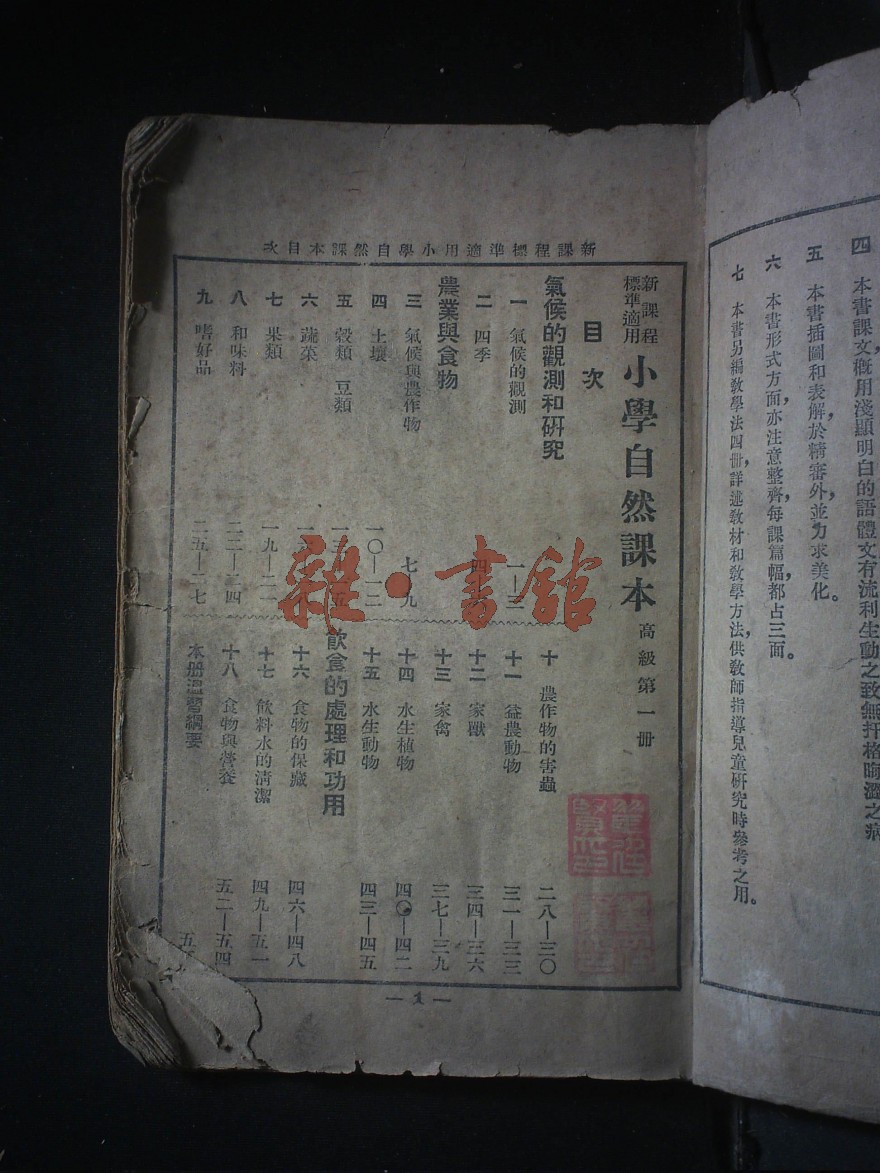 四　本書課文概用淺顯明白的語體文有流利生動之致無扞格晦澀之病
五　本書插圖和表解，於精審外，並力求美化。
六　本書形式方面，亦注意整齊，每課篇幅，都占三面。
七　本書另編敎學法四冊，詳述敎材和敎學方法，供敎師指導兒童研究時參考之用。
新課程標準適用小學自然課本目次
新課程標準適用　小學自然課本　高級第一冊
目次
氣候的觀測和研究
一　氣候的觀測　一—三
二　四季　四
農業與食物
三　氣候與農作物　七—九
四　土壤　一〇—一二
五　穀類　豆類　一三—一五
六　蔬菜
七　果類　一九—二一
八　和味料　二二—二四
九　嗜好品　二五—二七
十　農作物的害蟲　二八—三〇
十一　益農動物　三一—三三
十二　家獸　三四—三六
十三　家禽　三七—三九
十四　水生植物　四〇—四二
十五　水生動物　四三—四五
飮食的處理和功用
十六　食物的保藏　四六—四八
十七　飮料水的清潔　四九—五一
十八　食物與營養　五二—五四
本册溫習綱要　五
— 1 —
雜·書館